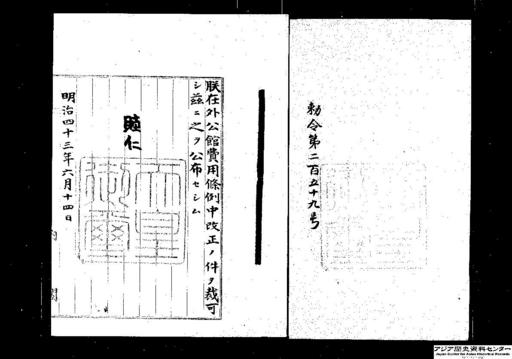 勅令第二百五十九号
朕在外公館費用條例中改正ノ件ヲ裁可
シ茲ニ之ヲ公布セシム
睦仁
天皇御璽
明治四十三年六月十四日
内閣
アジア歴史資料センター
Japan Center for Asian Historical Records